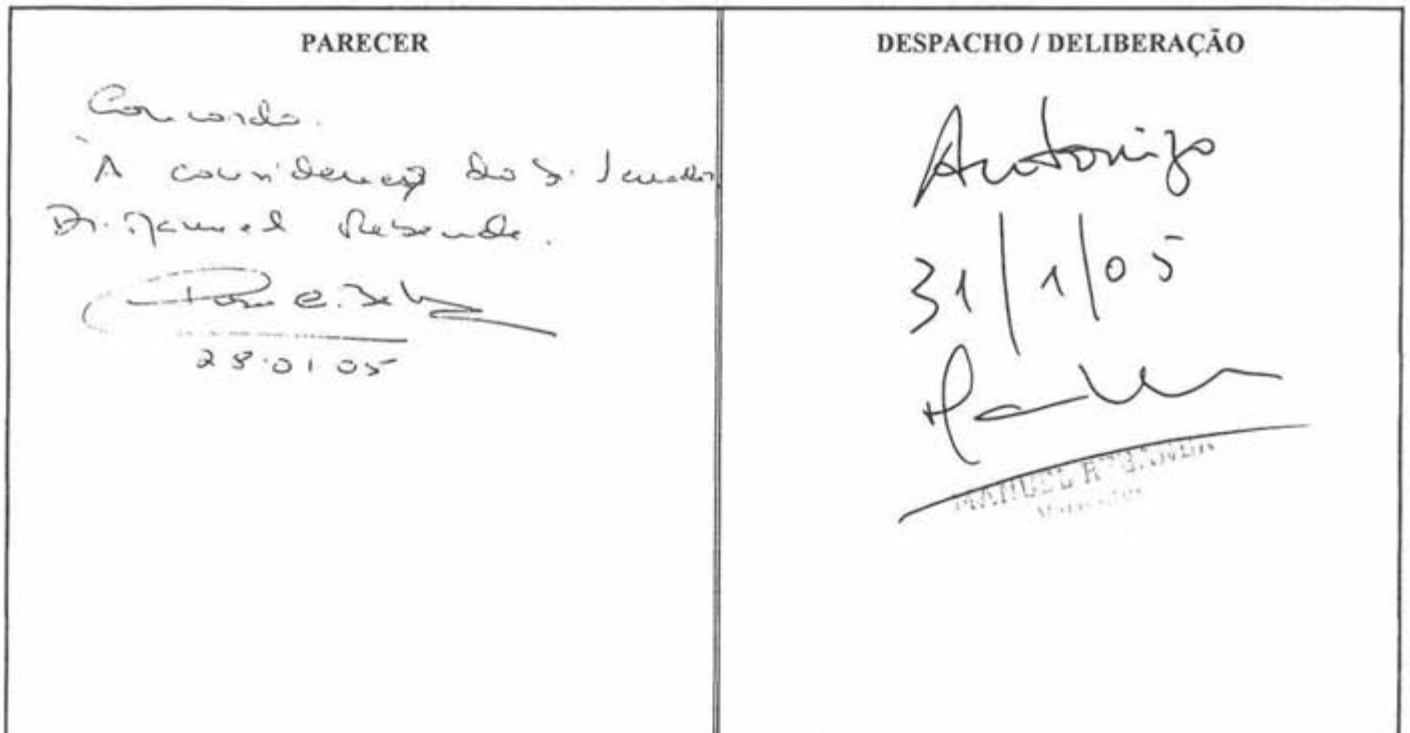 PARECER
Concordo.
À consideração do Sr. Vereador
Dr. Manuel Resende.
28.01.05
DESPACHO / DELIBERAÇÃO
Autorizo
31/1/05
MANUEL RESENDE
Vereador